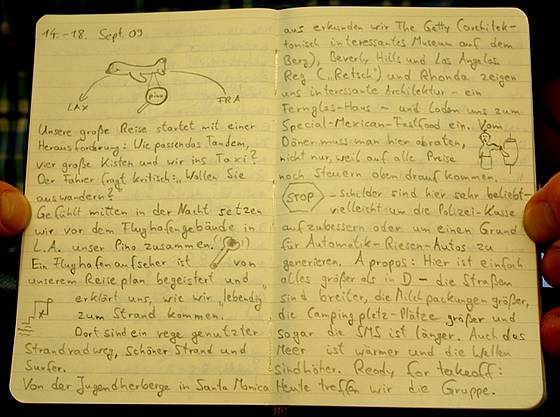 14.-18. Sept. 09
pino
LAX
FRA
Unsere große Reise startet mit einer
Herausforderung: Wie passen das Tandem,
vier große Kisten und wir ins Taxi?
Der Fahrer fragt kritisch: „Wollen Sie
auswandern?"
Gefühlt mitten in der Nacht setzen
wir vor dem Flughafengebäude in
L.A. unser Pino zusammen.
Ein Flughafenaufseher ist von
unserem Reiseplan begeistert und
erklärt uns, wie wir „lebendig"
zum Strand kommen.
Dort sind ein rege genutzter
Strandradweg, schöner Strand und
Surfer.
Von der Jugendherberge in Santa Monica
aus erkunden wir The Getty (architek-
tonisch interessantes Museum auf dem
Berg), Beverly Hills und Los Angeles
Reg („Retsch") und Rhonda zeigen
uns interessante Architektur – ein
Fernglas-Haus – und laden uns zum
Special-Mexican-Fastfood ein. Vom
Döner muss man hier abraten,
nicht nur, weil auf alle Preise
noch Steuern oben drauf kommen.
STOP -schilder sind hier sehr beliebt –
vielleicht um die Polizei-Kasse
aufzubessern oder um einen Grund
für Automatik-Riesen-Autos zu
generieren. Apropos: Hier ist einfach
alles größer als in D – die Straßen
sind breiter, die Milchpackungen größer,
die Campingplatz-Plätze größer und
sogar die SMS ist länger. Auch das
Meer ist wärmer und die Wellen
sind höher. Ready for takeoff:
Heute treffen wir die Gruppe.